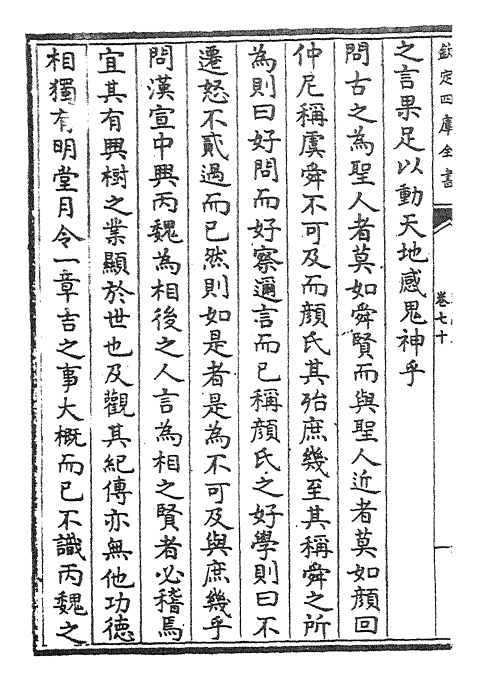 欽定四庫全書
卷七十
之言果足以動天地感鬼神乎
問古之為聖人者莫如舜賢而與聖人近者莫如顔回
仲尼稱虞舜不可及而顔氏其殆庶幾至其稱舜之所
為則曰好問而好察邇言而已稱顔氏之好學則曰不
遷怒不貳過而已然則如是者是為不可及與庶幾乎
問漢宣中興丙魏為相後之人言為相之賢者必稽焉
宜其有興樹之業顯於世也及觀其紀傳亦無他功德
相獨有明堂月令一章吉之事大概而已不識丙魏之